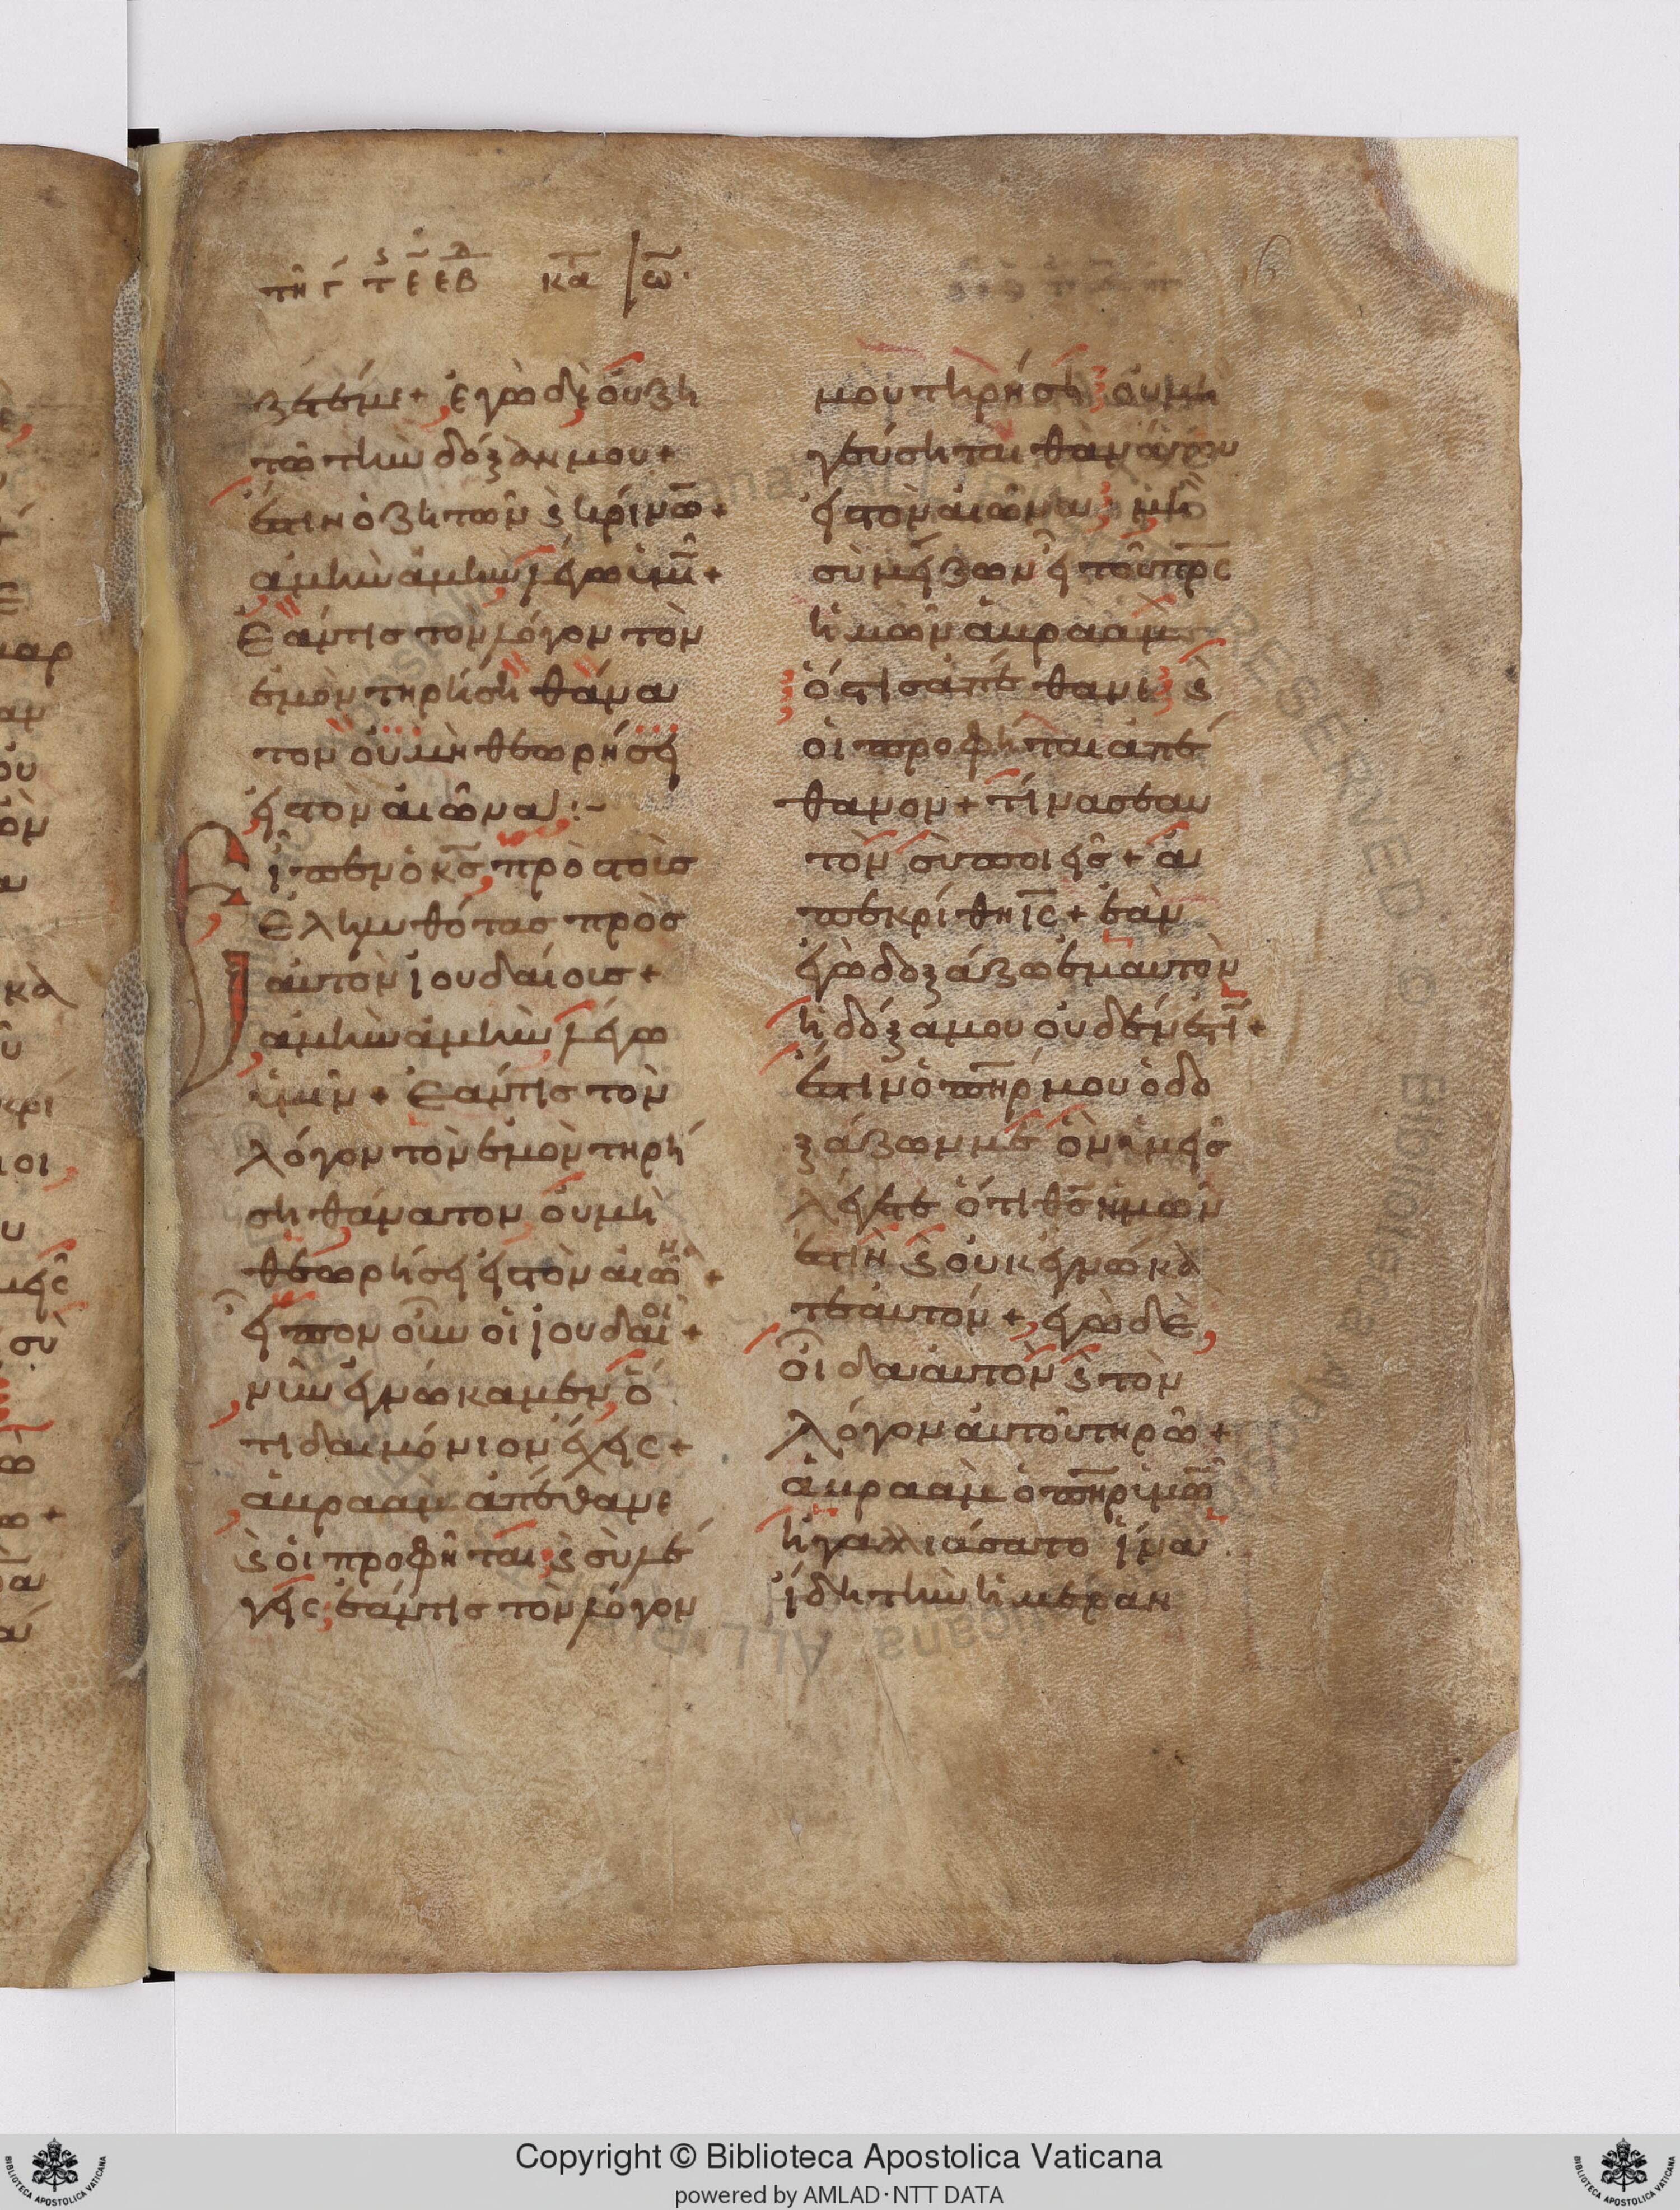 τῆ γ τ ς ε εβδ κτ ιω
ζετέ με + ἐγὼ δὲ οὐ ζη
τῶ τὴν δόξαν μου +
ἔστιν ὁ ζητῶν ϗ κρίνω̅ +
ἀμὴν ἀμὴν λέγω ὑμῖ̅ +
Ἐάν τις τὸν λόγον τὸν
ἐμὸν τηρήση θάνα
τον οὐ μὴ θεωρήσει
εἰς τὸν αἰῶνα :~
Εἶπεν ὁ κ̅ς̅ πρὸς τοὺς
ἐληλυθότας πρὸς
αὐτὸν ἰουδαίοις +
ἀμὴν ἀμὴν λέγω
ὑμῖν + Ἐάν τις τὸν
λόγον τὸν ἐμὸν τηρή
ση θάνατον οὐ μὴ
θεωρήσει εἰς τὸν αἰῶν +
εἶπον οὖν οἱ ἰουδαῖοι +
νῦν ἐγνώκαμεν ὅ
τι δαιμόνιον ἔχεις +
ἀβραὰμ ἀπέθανε
ϗ οἱ προφῆται ϗ σὺ λέ
γεις ἐάν τις τὸν λόγον
μου τηρήση οὐ μὴ
γεύσηται θανάτου
εἰς τὸν αἰῶνα μὴ
σὺ μείζων εἶ τοῦ π̅ρ̅ς̅
ἡμῶν ἀβραάμ
ὅστις ἀπέθανε ϗ
οἱ προφῆται ἀπέ
θανον + τίνα σεαυ
τὸν σὺ ποιεῖς + ἀ
πεκρίθη ι̅ς̅ + ἐὰν
ἐγὼ δοξάζω ἐμαυτὸν
ἡ δόξα μου οὐδέν ἐστι̅ +
ἔστιν ὁ π̅η̅ρ̅ μου ὁ δο
ξάζων με ὃν ὑμεῖς
λέγετε ὅτι θ̅ς̅ ἡμῶν
ἐστιν ϗ οὐκ ἐγνώκα
τε αὐτόν + ἐγὼ δὲ
οἶδα αὐτὸν ϗ τὸν
λόγον αὐτοῦ τηρῶ +
ἀβραὰμ ὁ π̅η̅ρ̅ ὑμῶ̅
ἠγαλλιάσατο ἵνα
ἴδη τὴν ἡμέραν
Copyright © Biblioteca Apostolica Vaticana
powered by AMLAD·NTT DATA